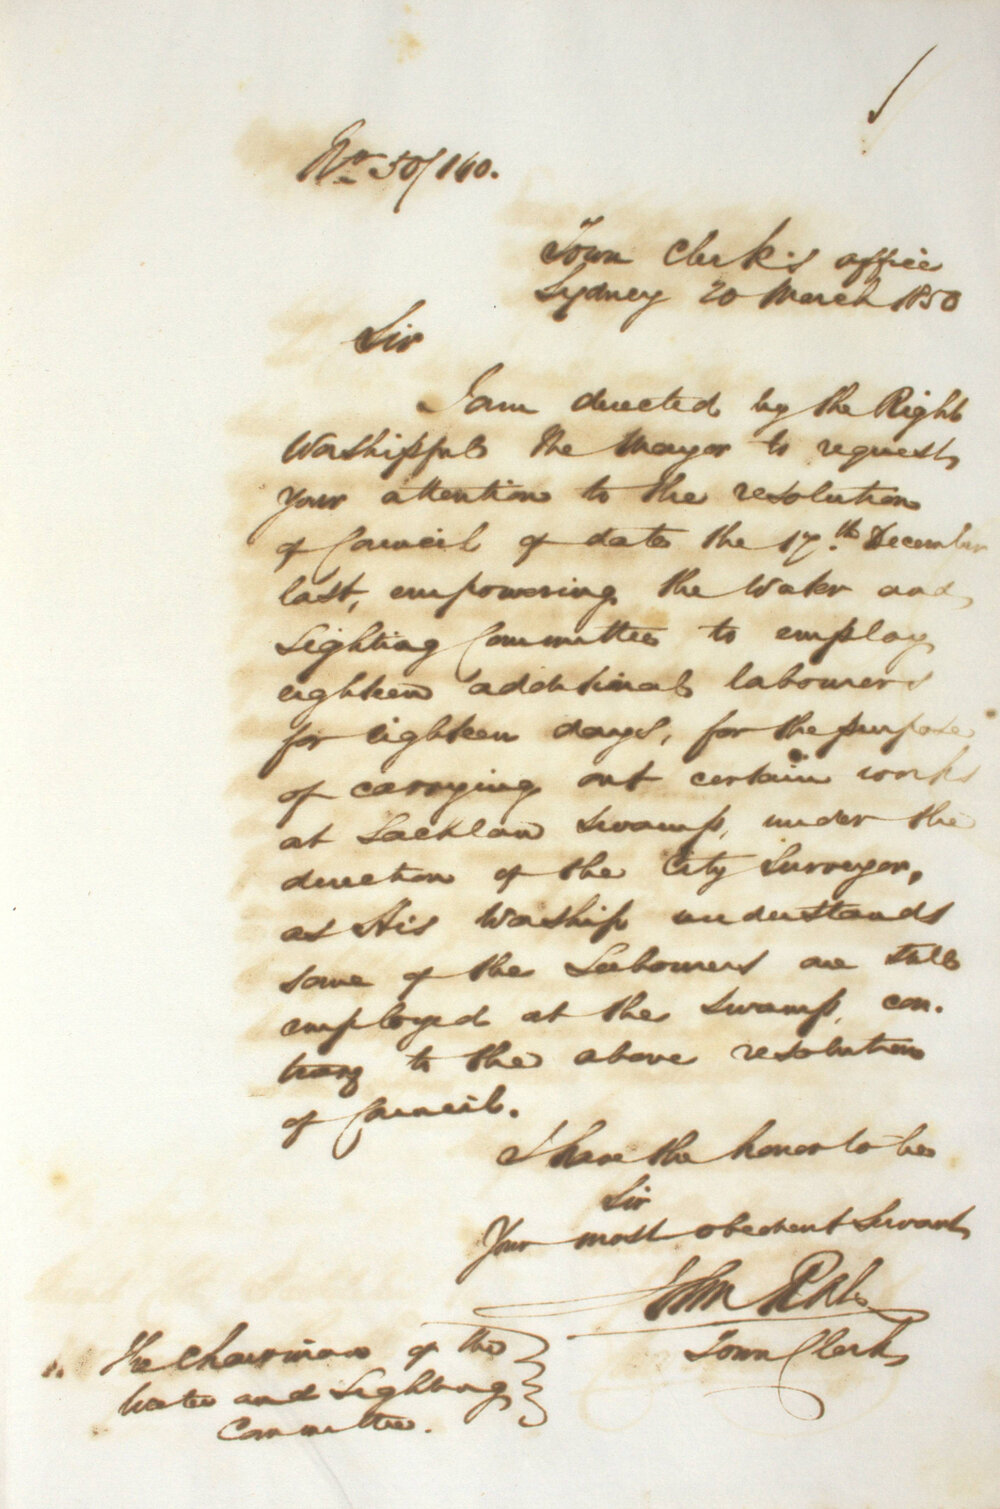 No. 50/140.
Town Clerk's office
Sydney 20 March 1850
Sir
I am directed by the Right
Worshipful the Mayor to request
your attention to the resolution
of Council of date the 17th December
last, empowering the Water and
Lighting Committee to employ
eighteen additional labourers
for eighteen days, for the purpose
of carrying out certain works
at Lachlan Swamp, under the
direction of the City Surveyor,
as His Worship understands
some of the Labourers are still
employed at the Swamp, con-
trary to the above resolution
of Council.
I have the honor to be
Sir
Your most obedient Servant
John
Town Clerk
The Chairman of the
Water and Lighting
Committee.